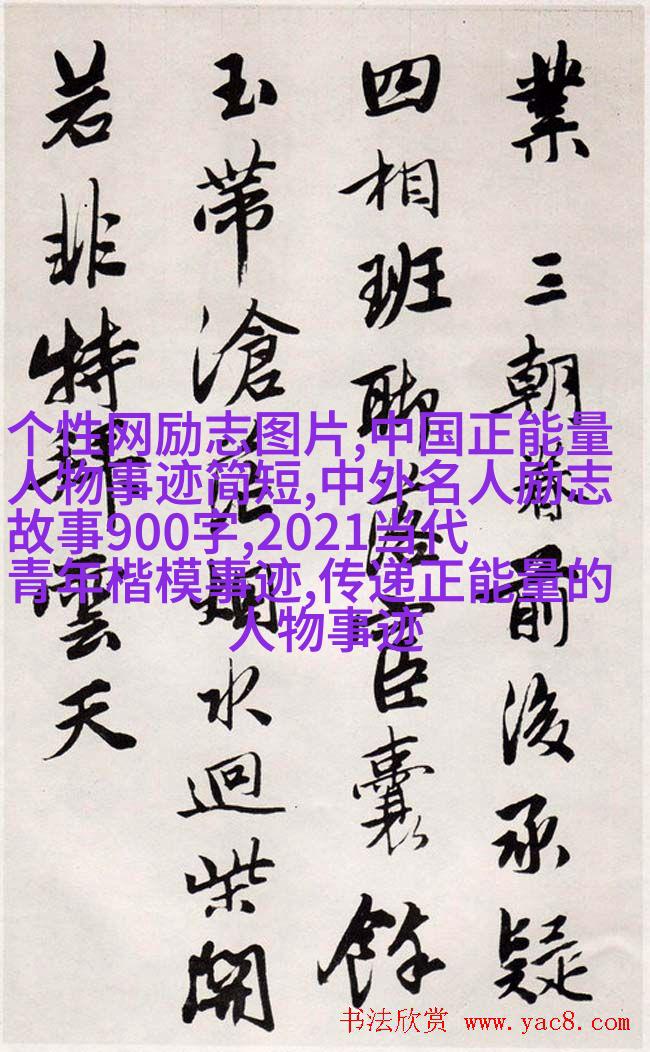 業 三朝著前後承疑
四相班聯臣囊餘
玉帶滄水迴柴開
若非特雲天
个性网励志图片,中国正能量
人物事迹简短,中外名人励志
故事900字,2021当代
青年楷模事迹,传递正能量的
人物事迹
书法欣赏 www.yac8.com